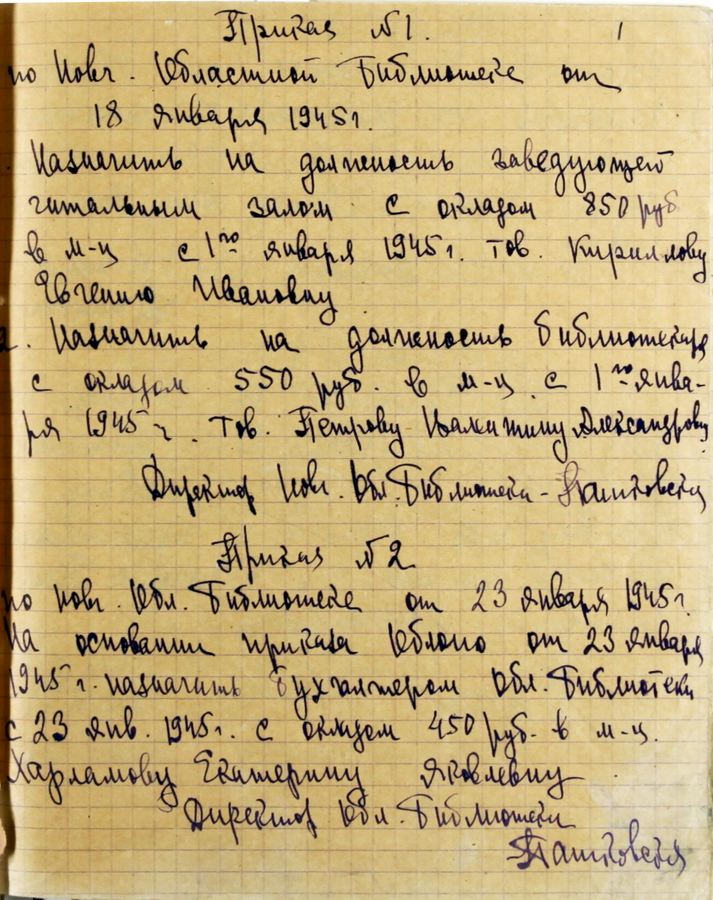 Приказ №1. 1
по Новг. Областной Библиотеке от
18 января 1945 г.
Назначить на должность заведующей
читальным залом с окладом 850 руб
в м-ц с 1го января 1945 г. тов. Кириллову
Евгению Ивановну
2. Назначить на должность библиотекаря
с окладом 550 руб. в м-ц с 1го янва-
ря 1945 г. тов. Петрову Александровну
Директор Новг. Обл. Библиотеки - Пашковская
Приказ №2
по Новг. Обл. Библиотеке от 23 января 1945 г.
На основании приказа Облоно от 23 января
1945 г. назначить бухгалтером Обл. Библиотеки
с 23 янв. 1945 г. с окладом 450 руб. в м-ц.
Харламову Екатерину Яковлевну
Директор Обл. Библиотеки
Пашковская